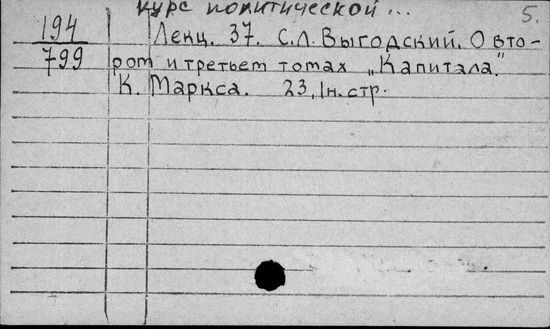 курс политической ... 5.
194 Лекц. 37. С.Л. Выгодский. О вто-
799 ром и третьем томах „Капитала."
К. Маркса. 23, 1н. стр.